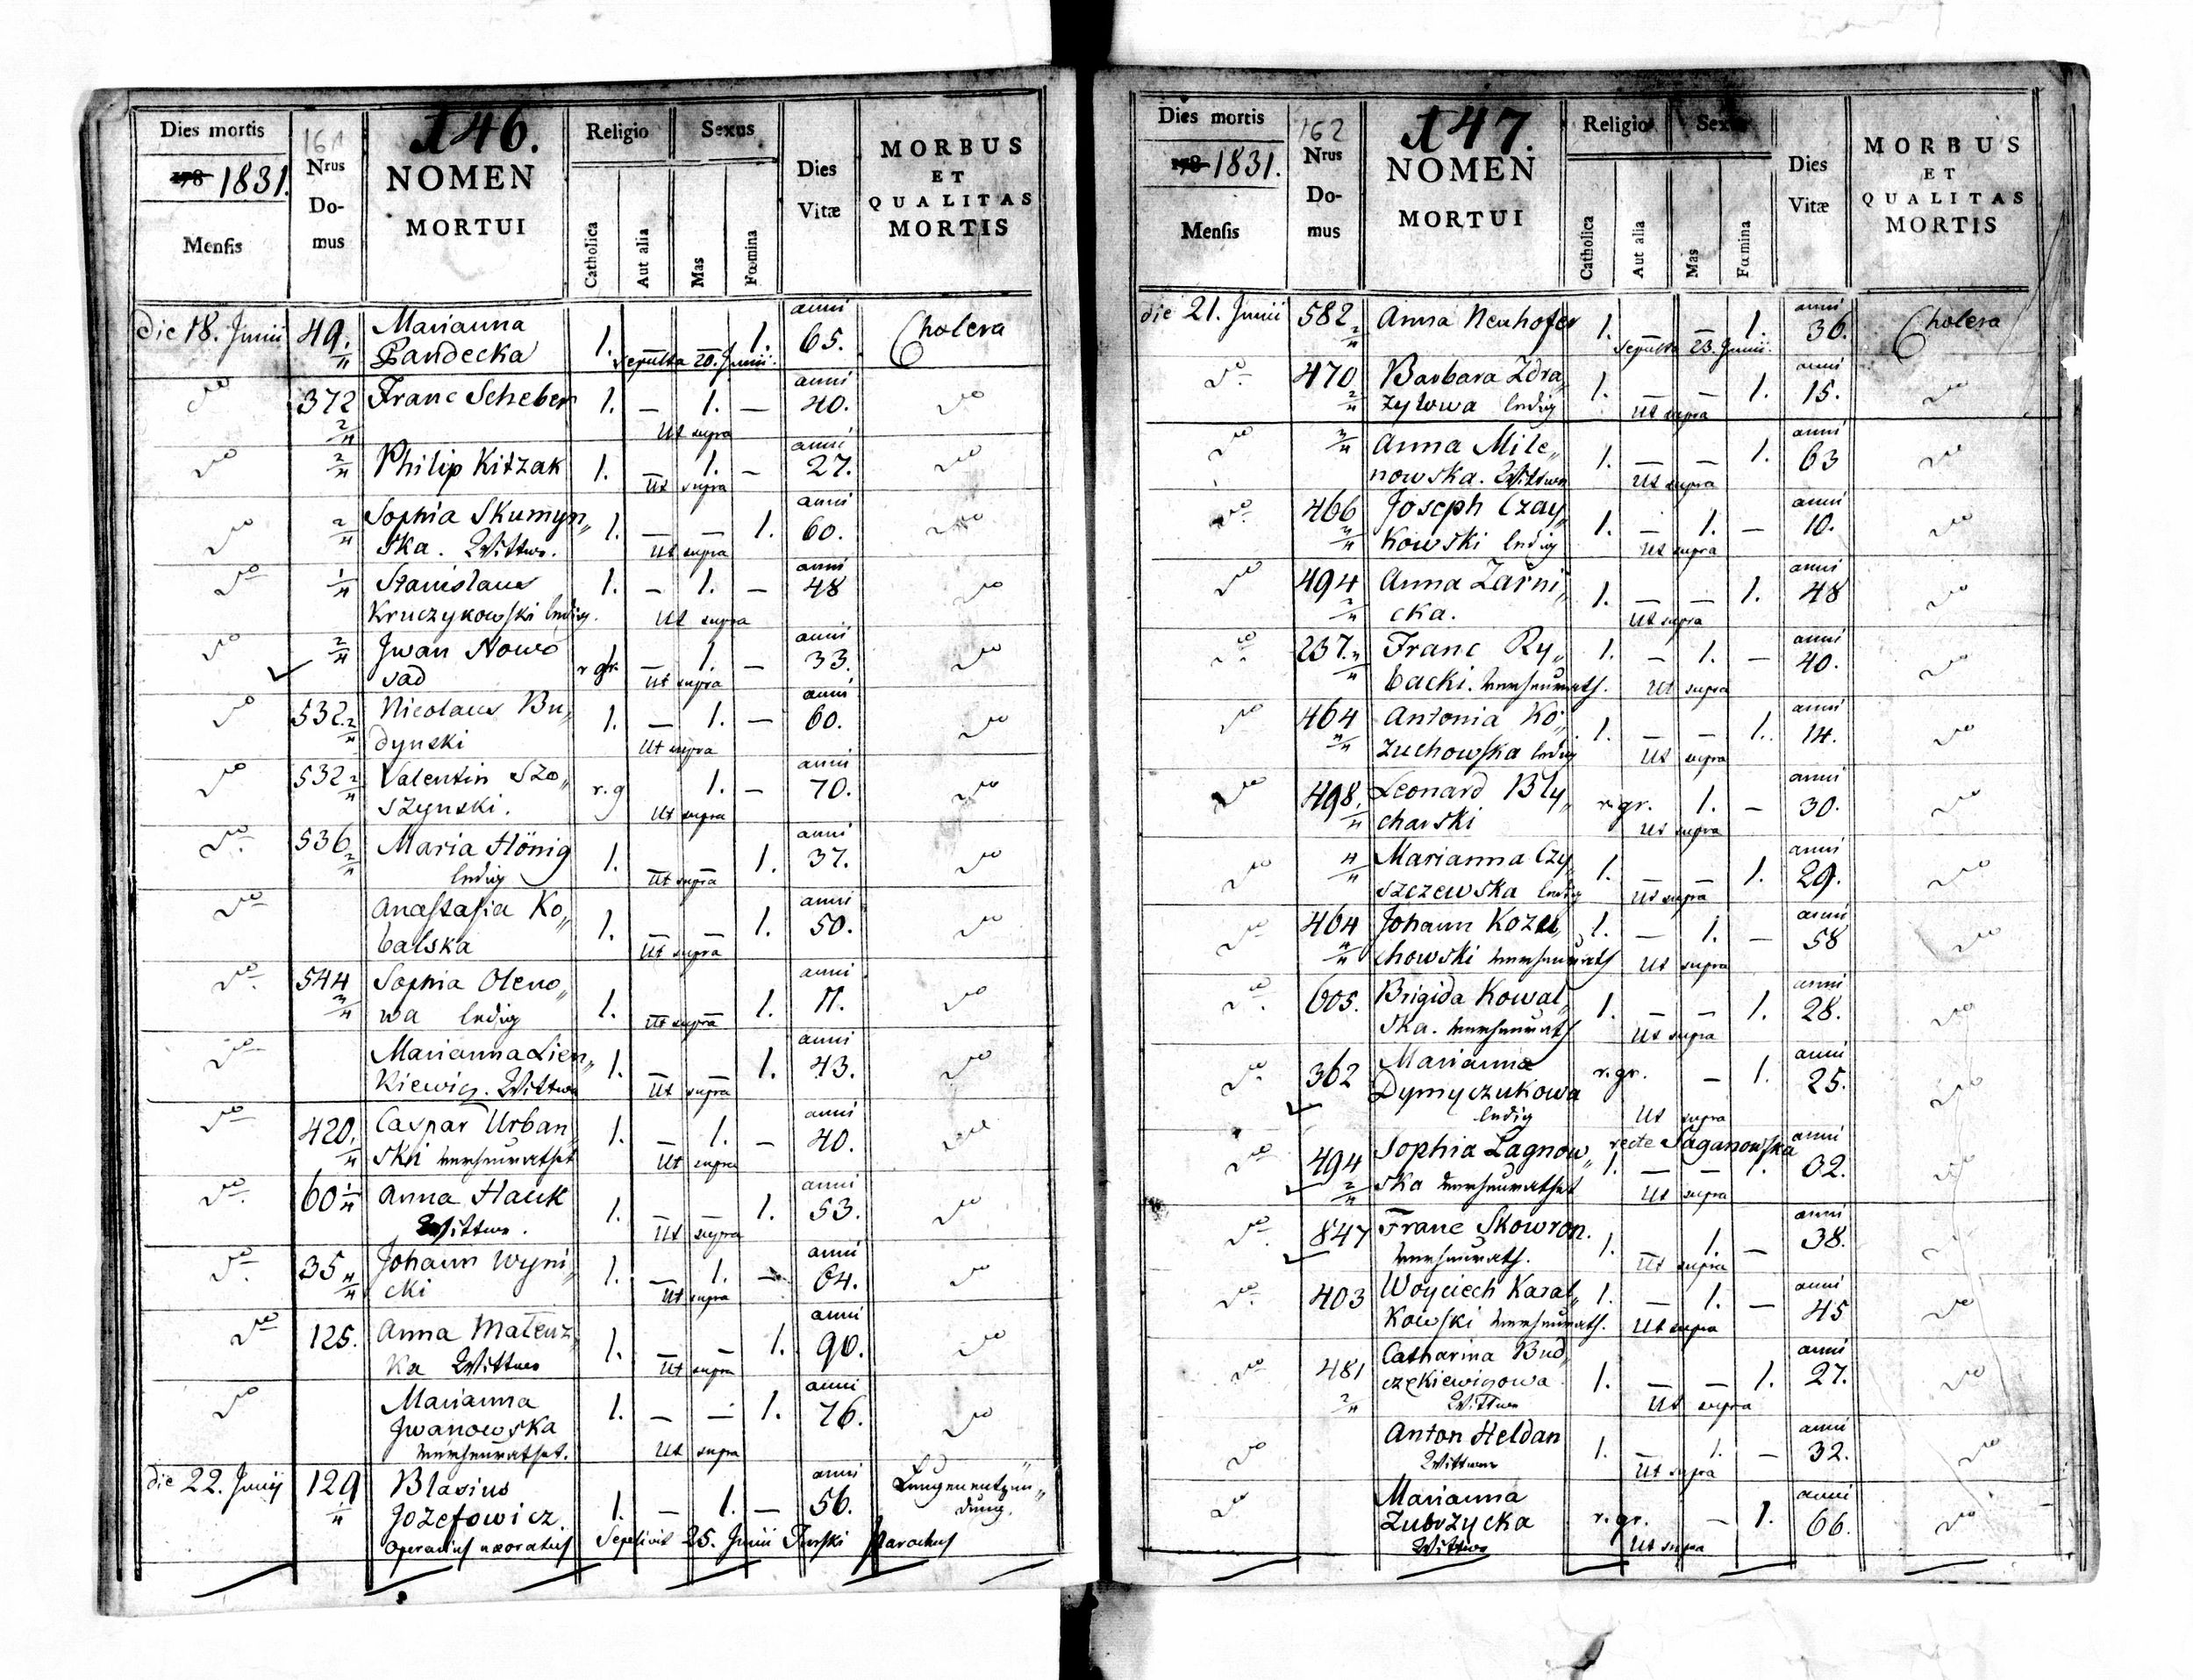 146.
161
Dies mortis
178 1831.
Mensis
Nrus Do-mus
NOMEN
MORTUI
Religio
Catholica
Aut alia
Sexus
Mas
Fœmina
Dies Vitæ
MORBUS
ET
QUALITAS
MORTIS
die 18. Junii 49. Marianna 1. — — 1. anni 65. Cholera
Sepulta 20. Junii.
do 372 2/4 Franc Scheber 1. — 1. — anni 40. do
Ut supra
do 2/4 Philip Kitzak 1. — 1. — anni 27. do
Ut supra
do 2/4 Sophia Skumyn„ 1. — — 1. anni 60. do
ska. Wittwe. Ut supra
do 1/4 Stanislaus 1. — 1. — anni 48 do
Kruczykowski ledig. Ut supra
do 2/4 Jwan Nowo r gr. — 1. — anni 33. do
sad Ut supra
do 532. 2/4 Nicolaus Bu„ 1. — 1. — anni 60. do
dynski Ut supra
do 532 2/4 Valentin Szo„ r. g 1. — anni 70. do
szynski. Ut supra
do 536 2/4 Maria Hönig 1. — — 1. anni 37. do
ledig Ut supra
do Anastasia Ko„ 1. — — 1. anni 50. do
balska Ut supra
do 544 Sophia Oleno„ 1. — — 1. anni 11. do
wa ledig Ut supra
do Marianna Lien„ 1. — — 1. anni 43. do
kiewicz. Wittwe Ut supra
do 420. Caspar Urban„ 1. — 1. — anni 40. do
ski verheurathet Ut supra
do 60 1/4 Anna Hauk 1. — — 1. anni 53. do
Wittwe. Ut supra
do 35 Johann Wyni„ 1. — 1. — anni 64. do
cki Ut supra
do 125. Anna Mateuz„ 1. — — 1. anni 90. do
ka Wittwe Ut supra
do Marianna 1. — — 1. anni 76. do
Jwanowska
verheurathet. Ut supra
die 22. Junij 129 1/4 Blasius 1. — 1. — anni 56. Lungenentzün„
Jozefowicz dung.
operarius uxoratus Sepelivit 25. Junii Parochus
147.
162
Dies mortis
178 1831.
Mensis
Nrus Do-mus
NOMEN
MORTUI
Religio
Catholica
Aut alia
Sexus
Mas
Fœmina
Dies Vitæ
MORBUS
ET
QUALITAS
MORTIS
die 21. Junii 582 2/4 Anna Neuhofer 1. — — 1. anni 36. Cholera
Sepulta 23. Junii.
do 470 2/4 Barbara Zdra„ 1. — — 1. anni 15. do
zylowa ledig Ut supra
do 3/4 Anna Mile„ 1. — — 1. anni 63 do
nowska. Wittwe Ut supra
do 466 3/4 Joseph Czay„ 1. — 1. — anni 10. do
kowski ledig Ut supra
do 494 2/4 Anna Zarni„ 1. — — 1. anni 48 do
cka. Ut supra
do 237. Franc Ry„ 1. — 1. — anni 40. do
backi. verheurath. Ut supra
do 464 Antonia Ko„ 1. — — 1. anni 14. do
zuchowska ledig Ut supra
do 498. Leonard Bly„ r. gr. 1. — anni 30. do
charski Ut supra
do 4/4 Marianna Czy„ 1. — — 1. anni 29. do
szczewska ledig Ut supra
do 464 4/4 Johann Kozu„ 1. — 1. — anni 58 do
chowski verheurath Ut supra
do 605. Brigida Kowal„ 1. — — 1. anni 28. do
ska. verheurath Ut supra
do 362 Marianna r. gr. — 1. anni 25. do
Dymyczukowa
ledig Ut supra
do 494 2/4 Sophia Lagnow„ recte Saganowska 1. — — 1. anni 32. do
ska verheurathet Ut supra
do 847 Franc Skowron. 1. 1. — anni 38. do
verheurath. Ut supra
do 403 Woyciech Karal„ 1. — 1. — anni 45 do
kowski verheurath. Ut supra
do 481 2/4 Catharina Bud„ 1. — — 1. anni 27. do
czkiewiczowa
Wittwe Ut supra
do Anton Heldan 1. — 1. — anni 32. do
Wittwer Ut supra
do Marianna r. gr. — 1. anni 66. do
Zubrzycka
Wittwe Ut supra